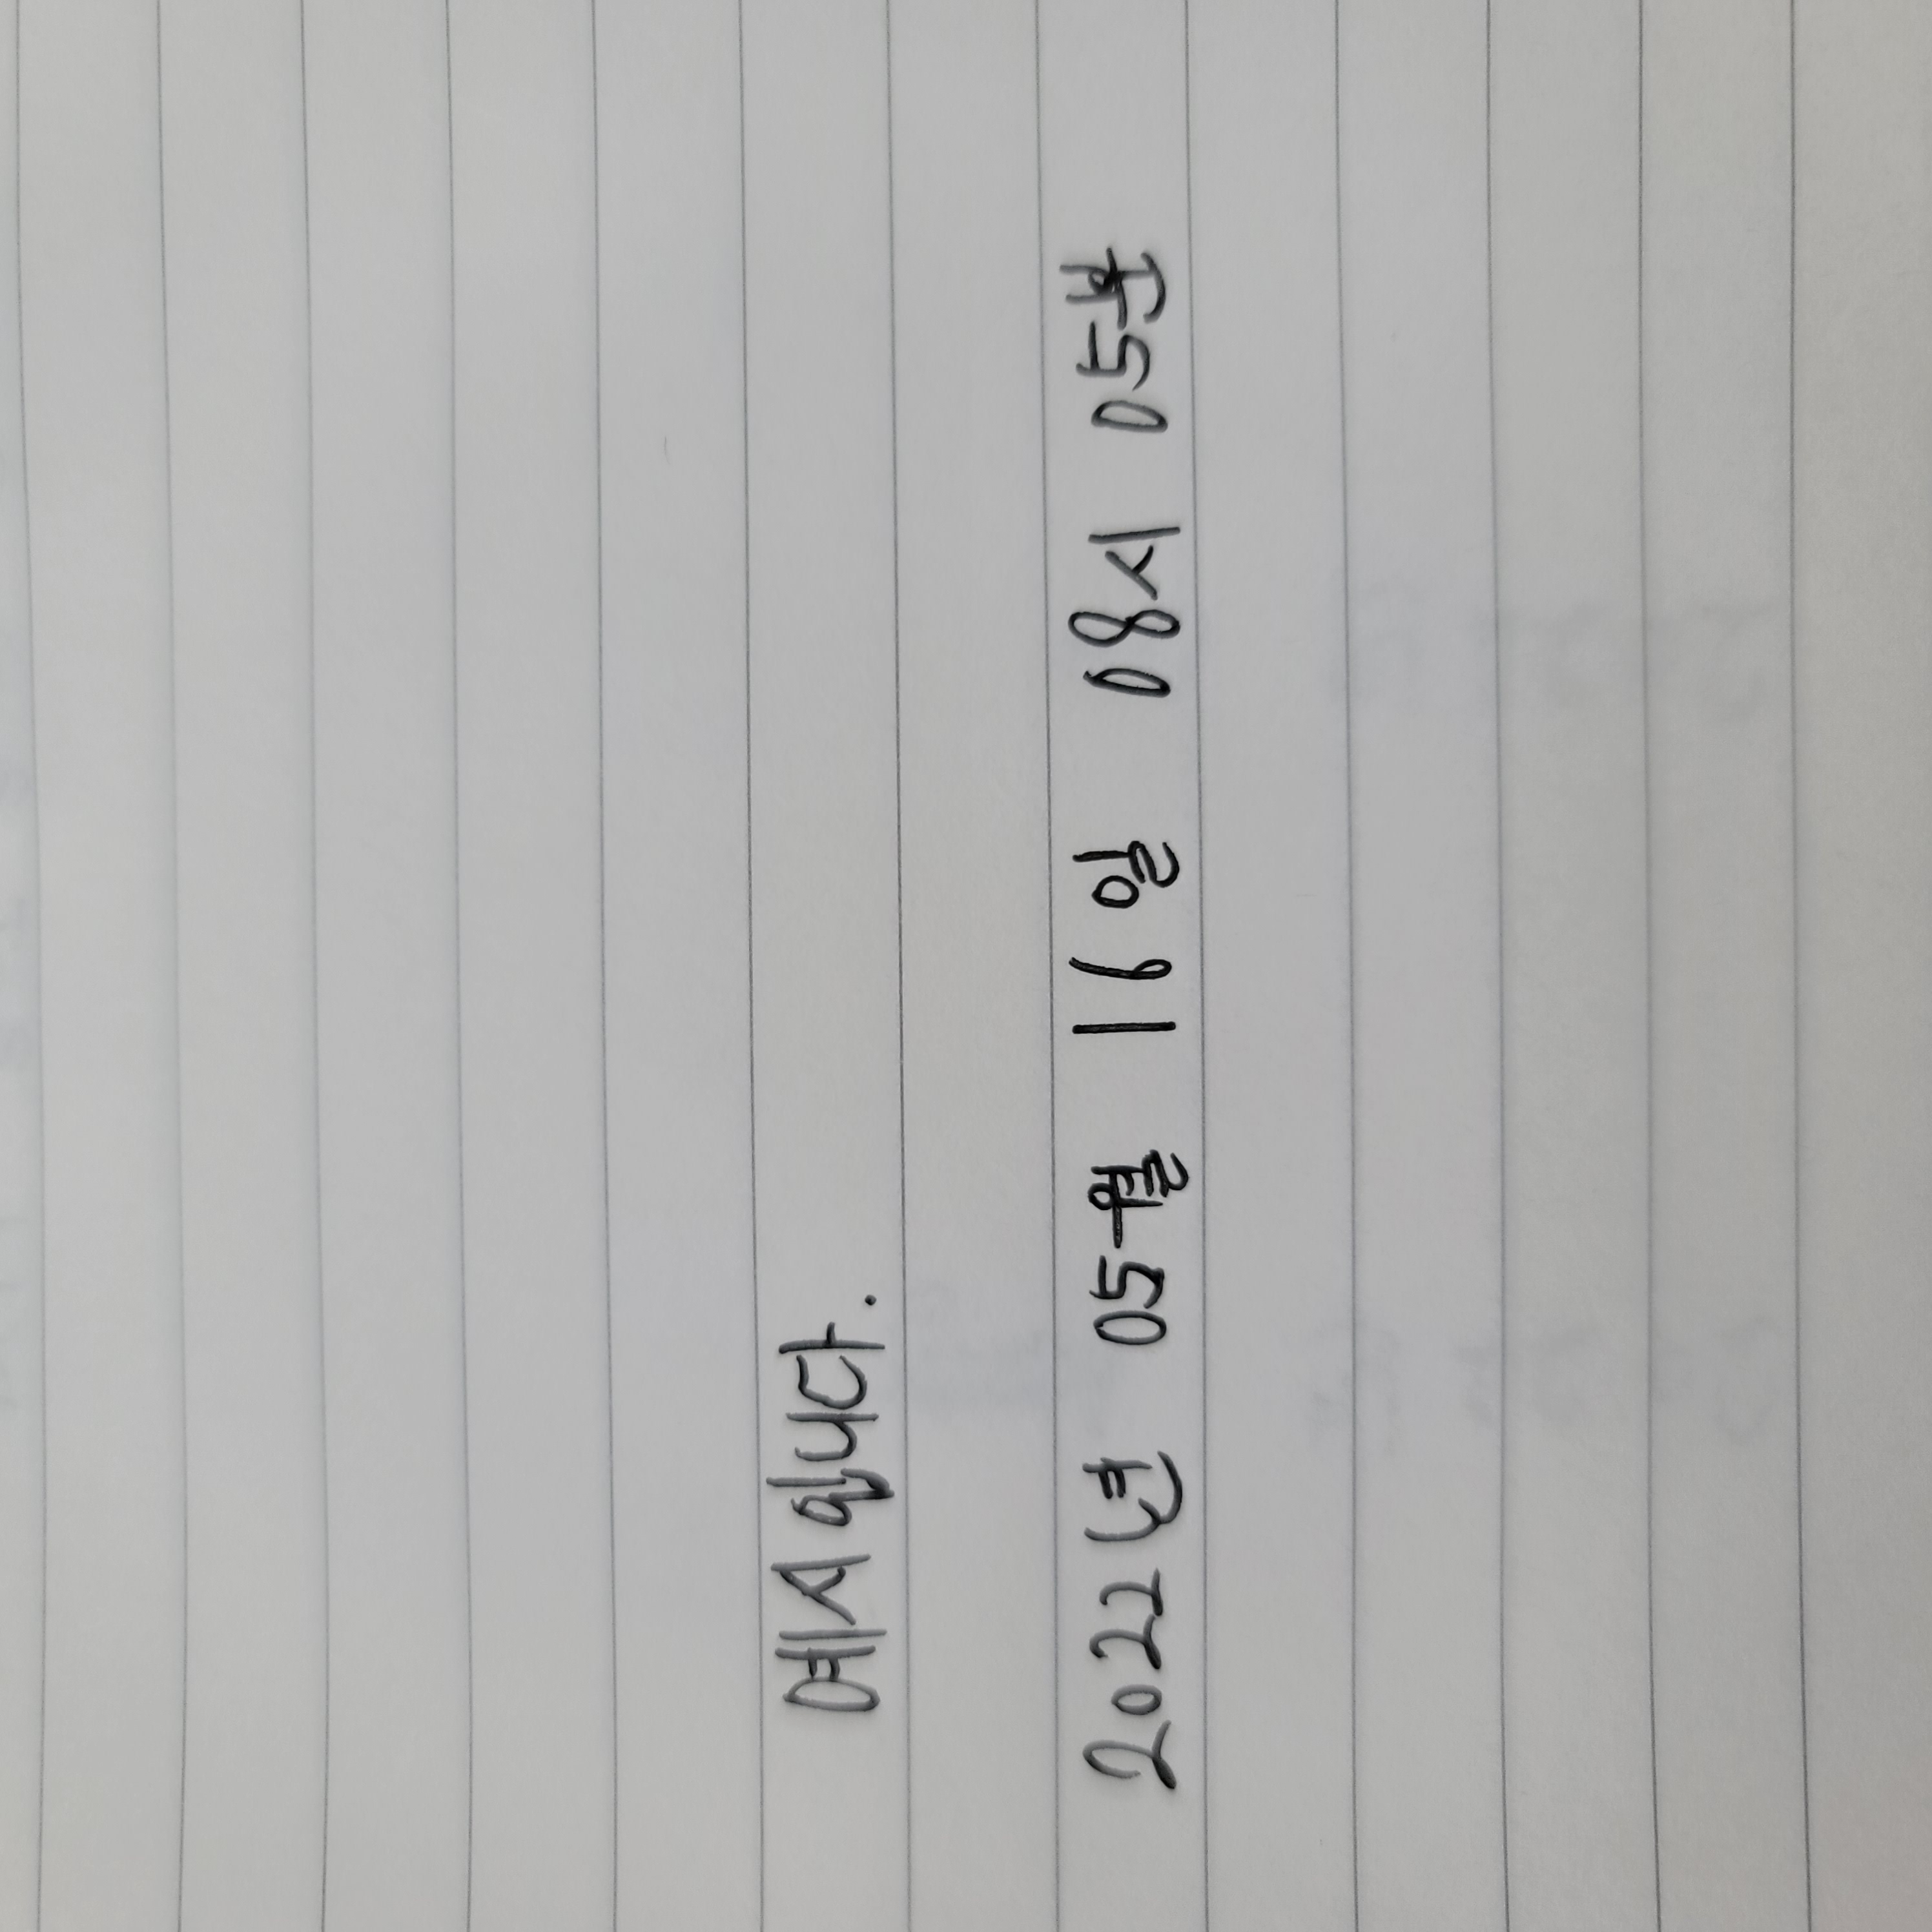 예시입니다.
2022년 05월 16일 08시 05분